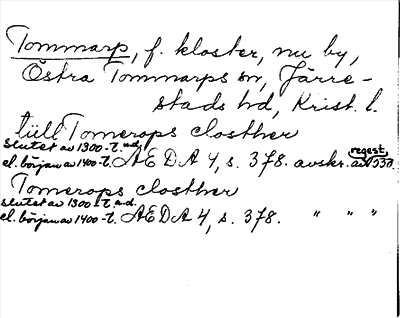 Tommarp, f. kloster, nu by,
Östra Tommarps sn, Järre-
stads hd, Krist. l.
tüll Tomerops closther
slutet av 1300-t. el. början av 1400-t. AEDA 4, s. 378. avskr. regest
Tomerops closther
slutet av 1300-t. el. början av 1400-t. AEDA 4, s. 378. " " "